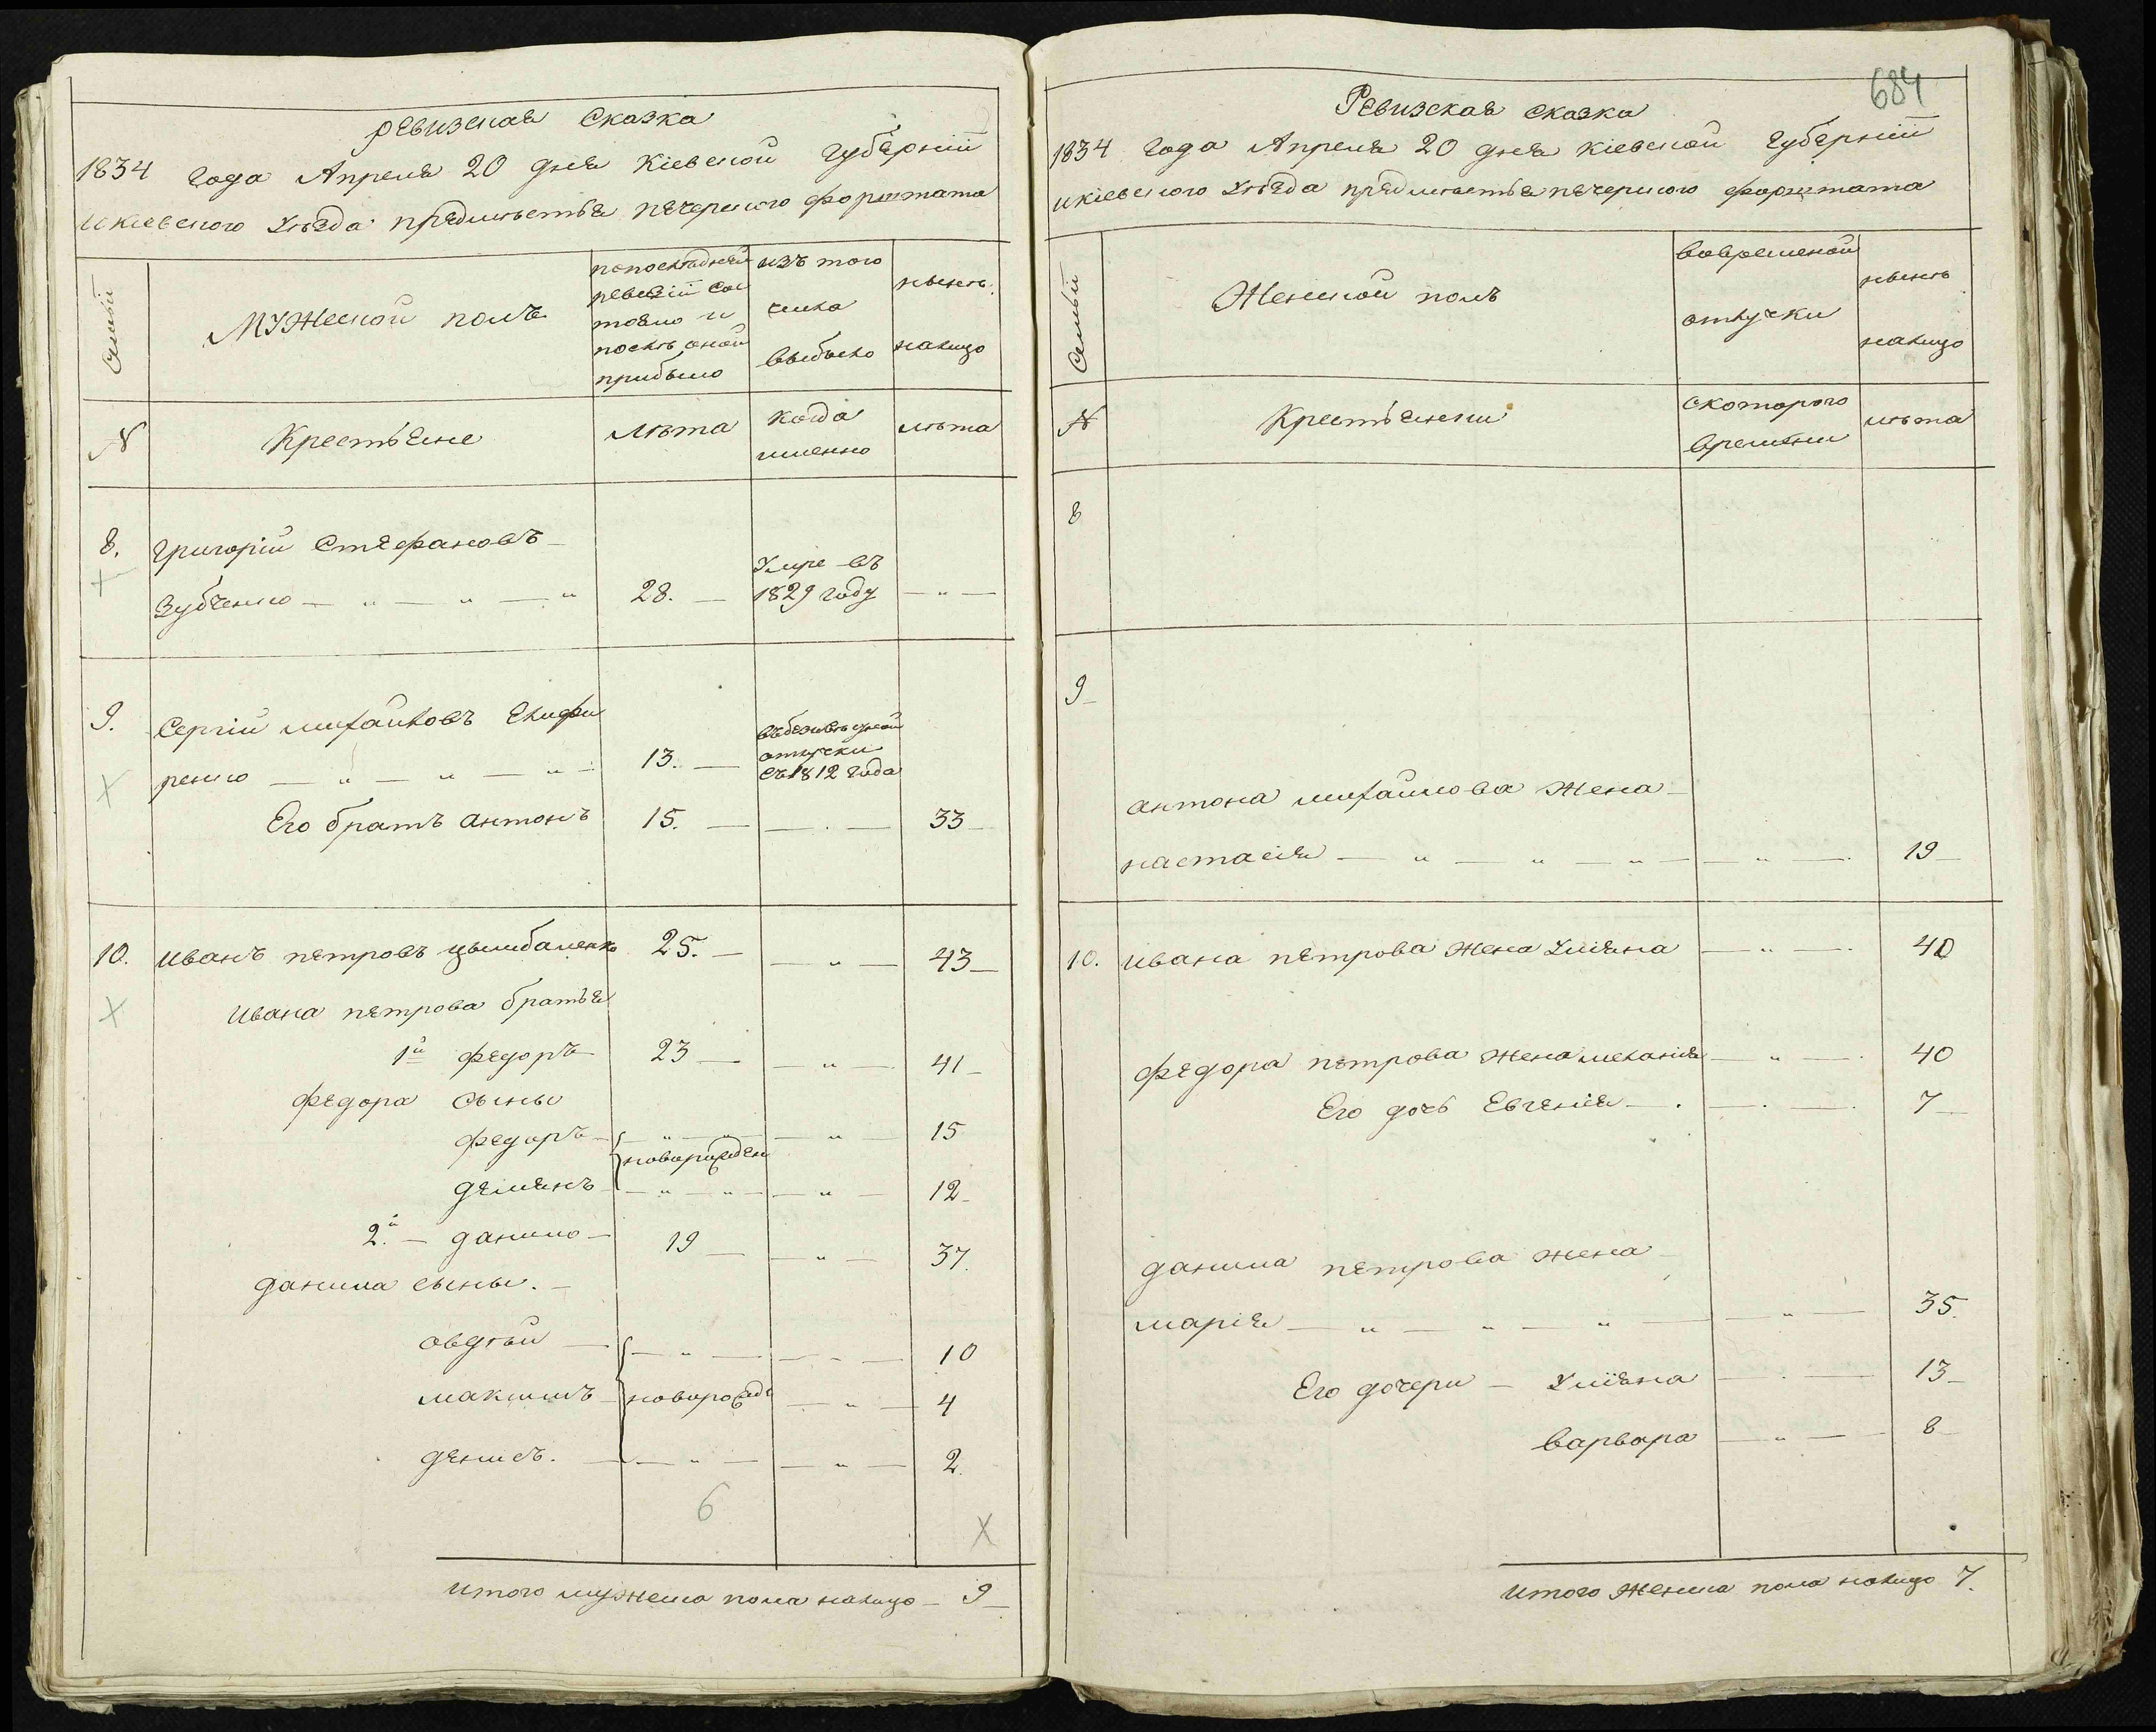 ревизская сказка
1834 года Апреля 20 дня Кіевской губерніи
и кіевского Уезда предместья печерского форштата
Семьи
Мужеской полъ
по последней ревизіи состояло и после оной прибыло
изъ того числа выбыло
ныне налицо
№
Крестьяне
лѣта
когда именно
лѣта
8. григорій Стефановъ
Зубченко — „ — „ — „ 28. — Умре въ 1829 году — „ —
9. Сергій михайловъ
ренко — „ — „ — „ 13. — въ безизвѣсной отлучки съ 1812 года
Его братъ антонъ 15. — — . — 33
10. иванъ петровъ цымбаленко 25. — — „ — 43
ивана петрова братья
1й федоръ 23 — — „ — 41
федора сыны
федоръ — „ — „ — „ — 15
новорожден
демянъ — „ — „ — „ — 12
2й — данило — 19 — — „ — 37.
данила сыны. —
овдѣй — — „ — — - — 10
максимъ новорожде — „ — 4
денисъ. — — „ — — „ — 2.
6
X
итого мужеска пола налицо — 9
684
Ревизская сказка
1834 года Апреля 20 дня кіевской губерніи
и кіевского Уезда предместья печерского форштата
Семьи
Женской полъ
во временной отлучки
ныне налицо
№
Крестьянки
с которого времени
лѣта
8
9
антона михайлова жена —
настасія — „ — „ — „ — „ — 19
10. ивана петрова жена Уліяна — „ — 40
федора петрова жена меланія — „ — 40
Его дочь Евгенія — . — . — 7
данила петрова жена
марія — „ — „ — „ — „ — 35.
Его дочери — Уліяна — . — 13
варвара — „ — 8
итого женска пола налицо 7.